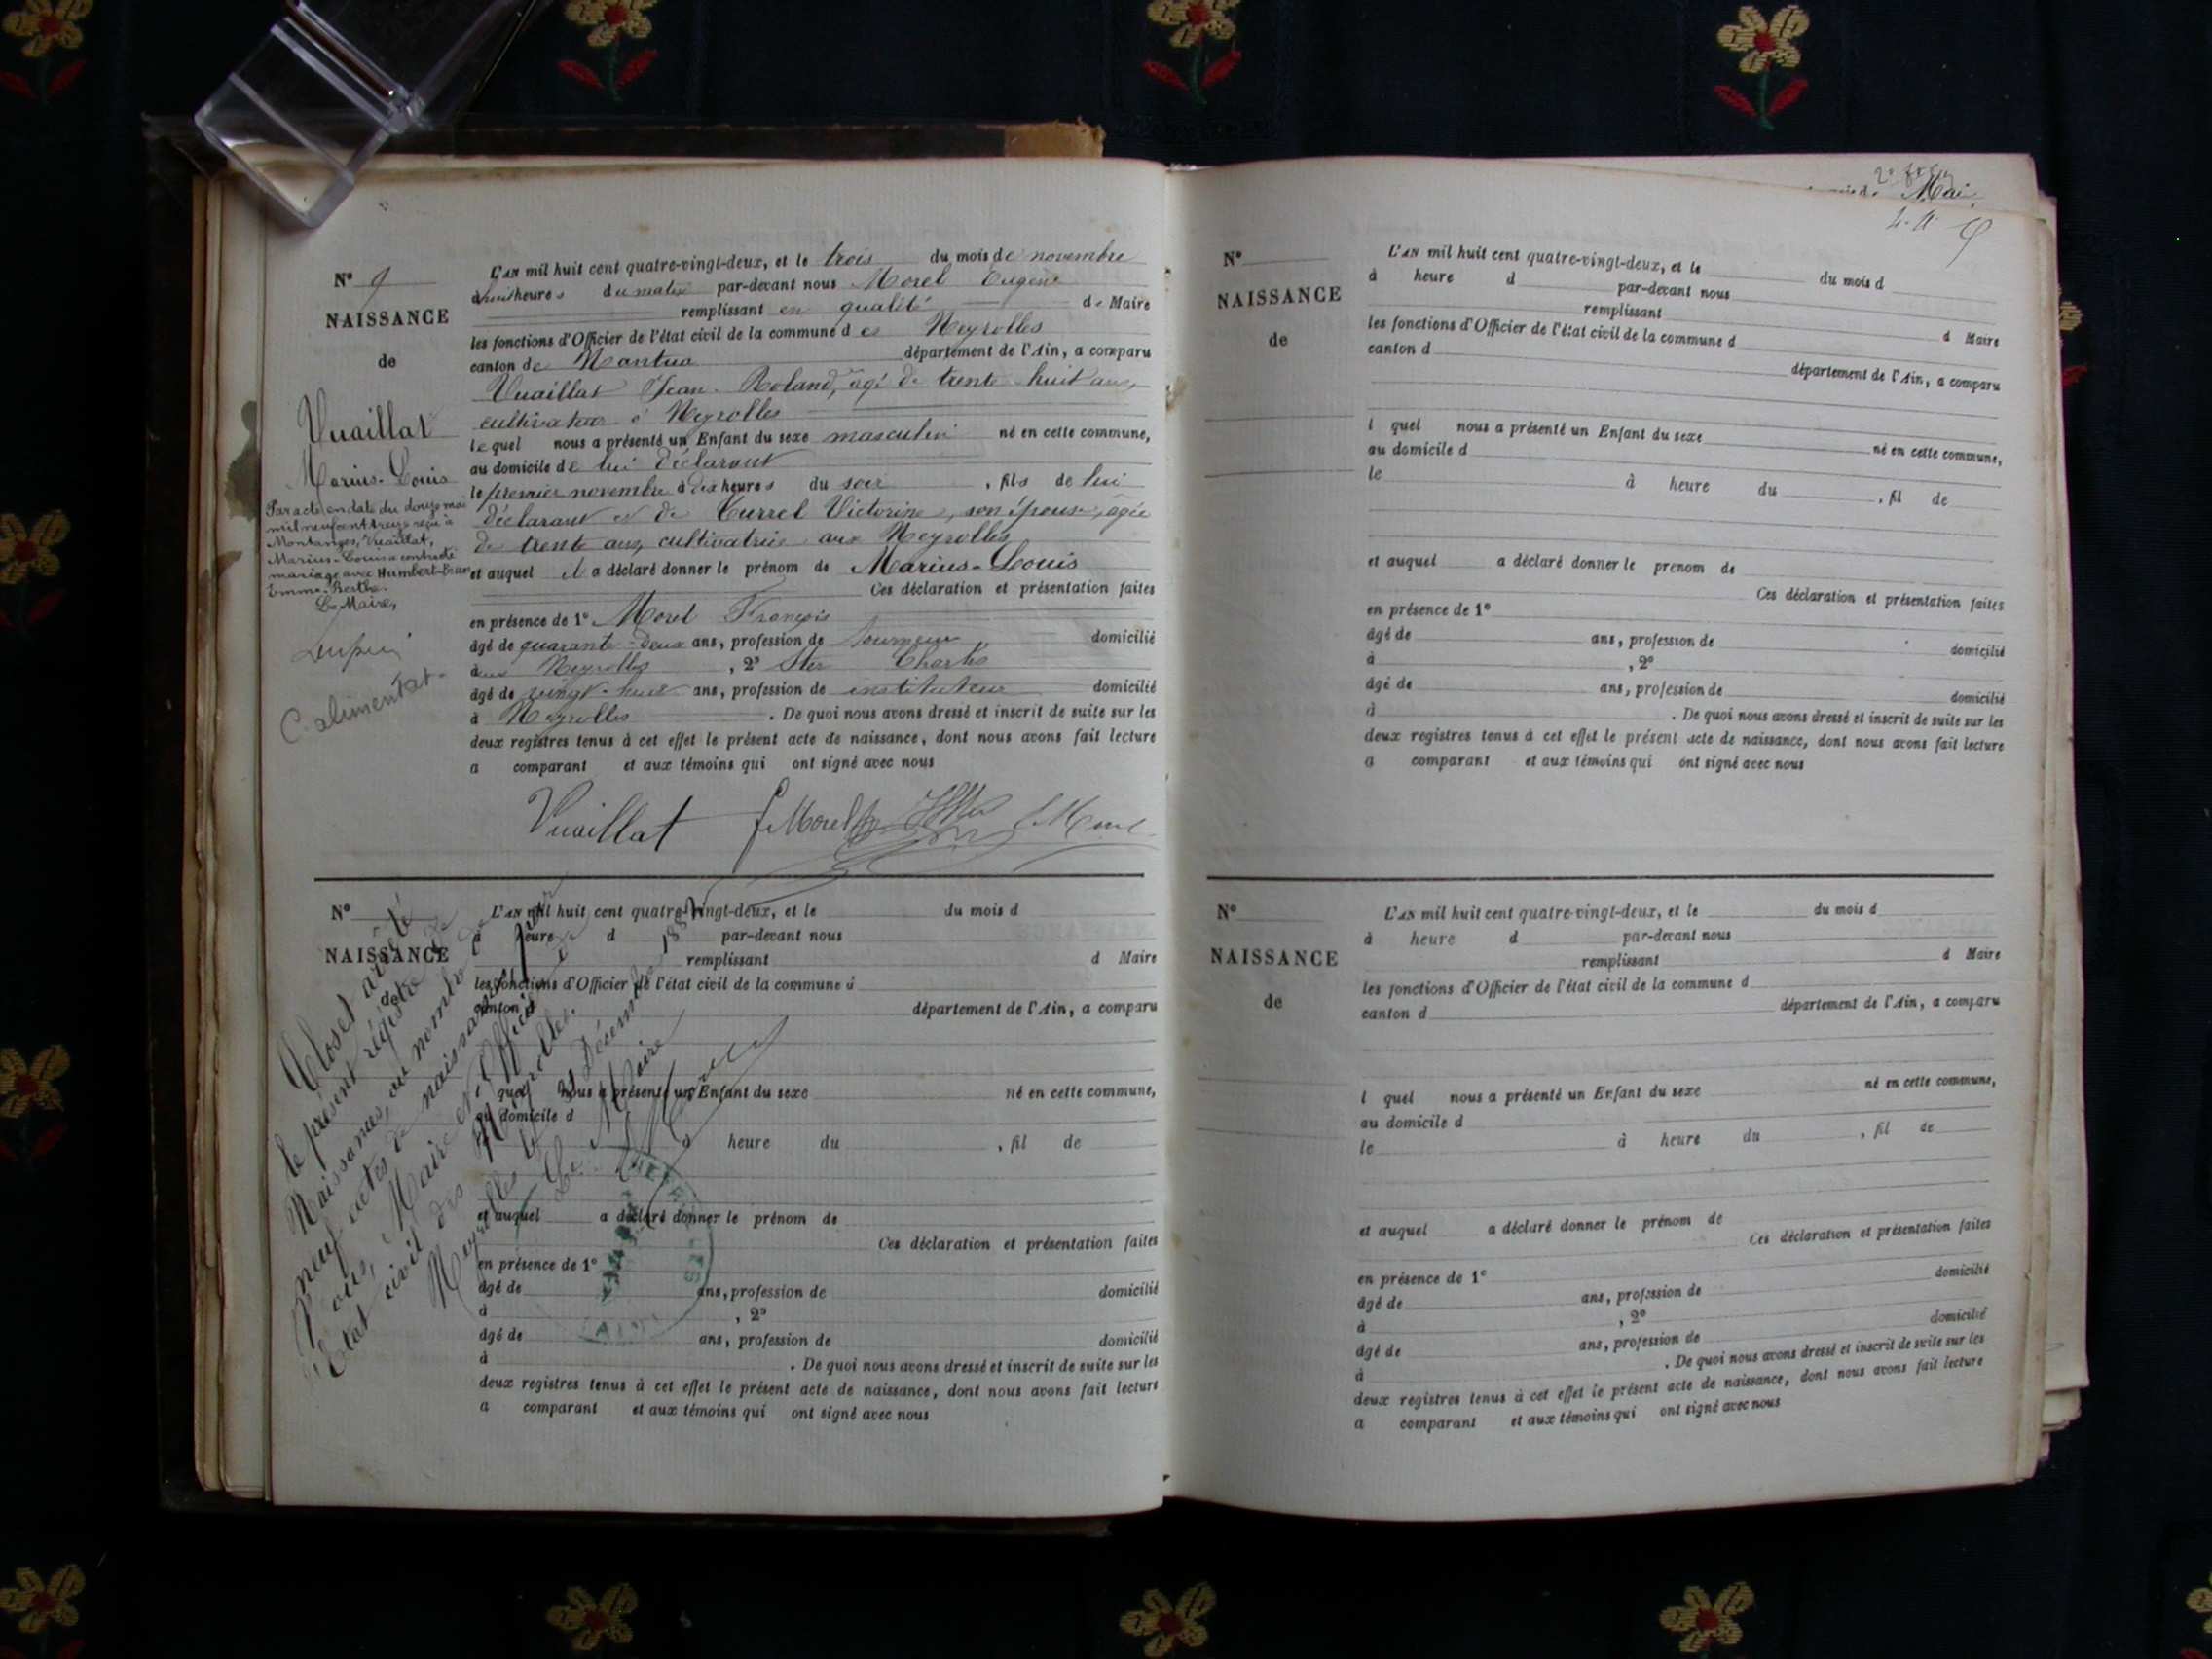 N° 9
NAISSANCE
de
Vuaillat
Marius-Louis
Par acte en date du douze mai
mil neuf cent treize reçu à
Montanges, Vuaillat,
Marius-Louis a contracté
mariage avec Humbert-Brun
Emma-Berthe.
Le Maire,
C. alimentat.
L'AN mil huit cent quatre-vingt-deux, et le trois du mois de novembre
à huit heures du matin par-devant nous Morel Eugène
remplissant en qualité de Maire
les fonctions d'Officier de l'état civil de la commune des Neyrolles
canton de Nantua département de l'Ain, a comparu
Vuaillat Jean-Roland, âgé de trente-huit ans,
cultivateur à Neyrolles
lequel nous a présenté un Enfant du sexe masculin né en cette commune,
au domicile de lui déclarant
le premier novembre à dix heures du soir, fils de lui
déclarant et de Curret Victorine, son épouse, âgée
de trente ans, cultivatrice aux Neyrolles
et auquel il a déclaré donner le prénom de Marius-Louis
Ces déclaration et présentation faites
en présence de 1° Morel François
âgé de quarante-deux ans, profession de tourneur domicilié
aux Neyrolles, 2° Charles
âgé de ans, profession de instituteur domicilié
à Neyrolles. De quoi nous avons dressé et inscrit de suite sur les
deux registres tenus à cet effet le présent acte de naissance, dont nous avons fait lecture
a comparant et aux témoins qui ont signé avec nous
Vuaillat F. Morel E. Morel
N°
NAISSANCE
L'AN mil huit cent quatre-vingt-deux, et le du mois d
à heure d par-devant nous
remplissant d Maire
les fonctions d'Officier de l'état civil de la commune d
canton d département de l'Ain, a comparu
l quel nous a présenté un Enfant du sexe né en cette commune,
au domicile d
à heure du , fil de
et auquel a déclaré donner le prénom de
Ces déclaration et présentation faites
en présence de 1°
âgé de ans, profession de domicilié
à , 2°
âgé de ans, profession de domicilié
à . De quoi nous avons dressé et inscrit de suite sur les
deux registres tenus à cet effet le présent acte de naissance, dont nous avons fait lecture
a comparant et aux témoins qui ont signé avec nous
Clos et arrêté
le présent régistre de
Naissances, au nombre de
neuf actes de naissance, par
nous, Maire et Officier de
l'Etat civil des Neyrolles.
Neyrolles le 31 Décembre 1882
Le Maire
E. Morel
NEYROLLES
(AIN)
Mai
N°
NAISSANCE
de
L'AN mil huit cent quatre-vingt-deux, et le du mois d
à heure d par-devant nous
remplissant d Maire
les fonctions d'Officier de l'état civil de la commune d
canton d département de l'Ain, a comparu
l quel nous a présenté un Enfant du sexe né en cette commune,
au domicile d
le à heure du , fil de
et auquel a déclaré donner le prénom de
Ces déclaration et présentation faites
en présence de 1°
âgé de ans, profession de domicilié
à , 2°
âgé de ans, profession de domicilié
à . De quoi nous avons dressé et inscrit de suite sur les
deux registres tenus à cet effet le présent acte de naissance, dont nous avons fait lecture
a comparant et aux témoins qui ont signé avec nous
N°
NAISSANCE
de
L'AN mil huit cent quatre-vingt-deux, et le du mois d
à heure d par-devant nous
remplissant d Maire
les fonctions d'Officier de l'état civil de la commune d
canton d département de l'Ain, a comparu
l quel nous a présenté un Enfant du sexe né en cette commune,
au domicile d
le à heure du , fil de
et auquel a déclaré donner le prénom de
Ces déclaration et présentation faites
en présence de 1°
âgé de ans, profession de domicilié
à , 2°
âgé de ans, profession de domicilié
à . De quoi nous avons dressé et inscrit de suite sur les
deux registres tenus à cet effet le présent acte de naissance, dont nous avons fait lecture
a comparant et aux témoins qui ont signé avec nous